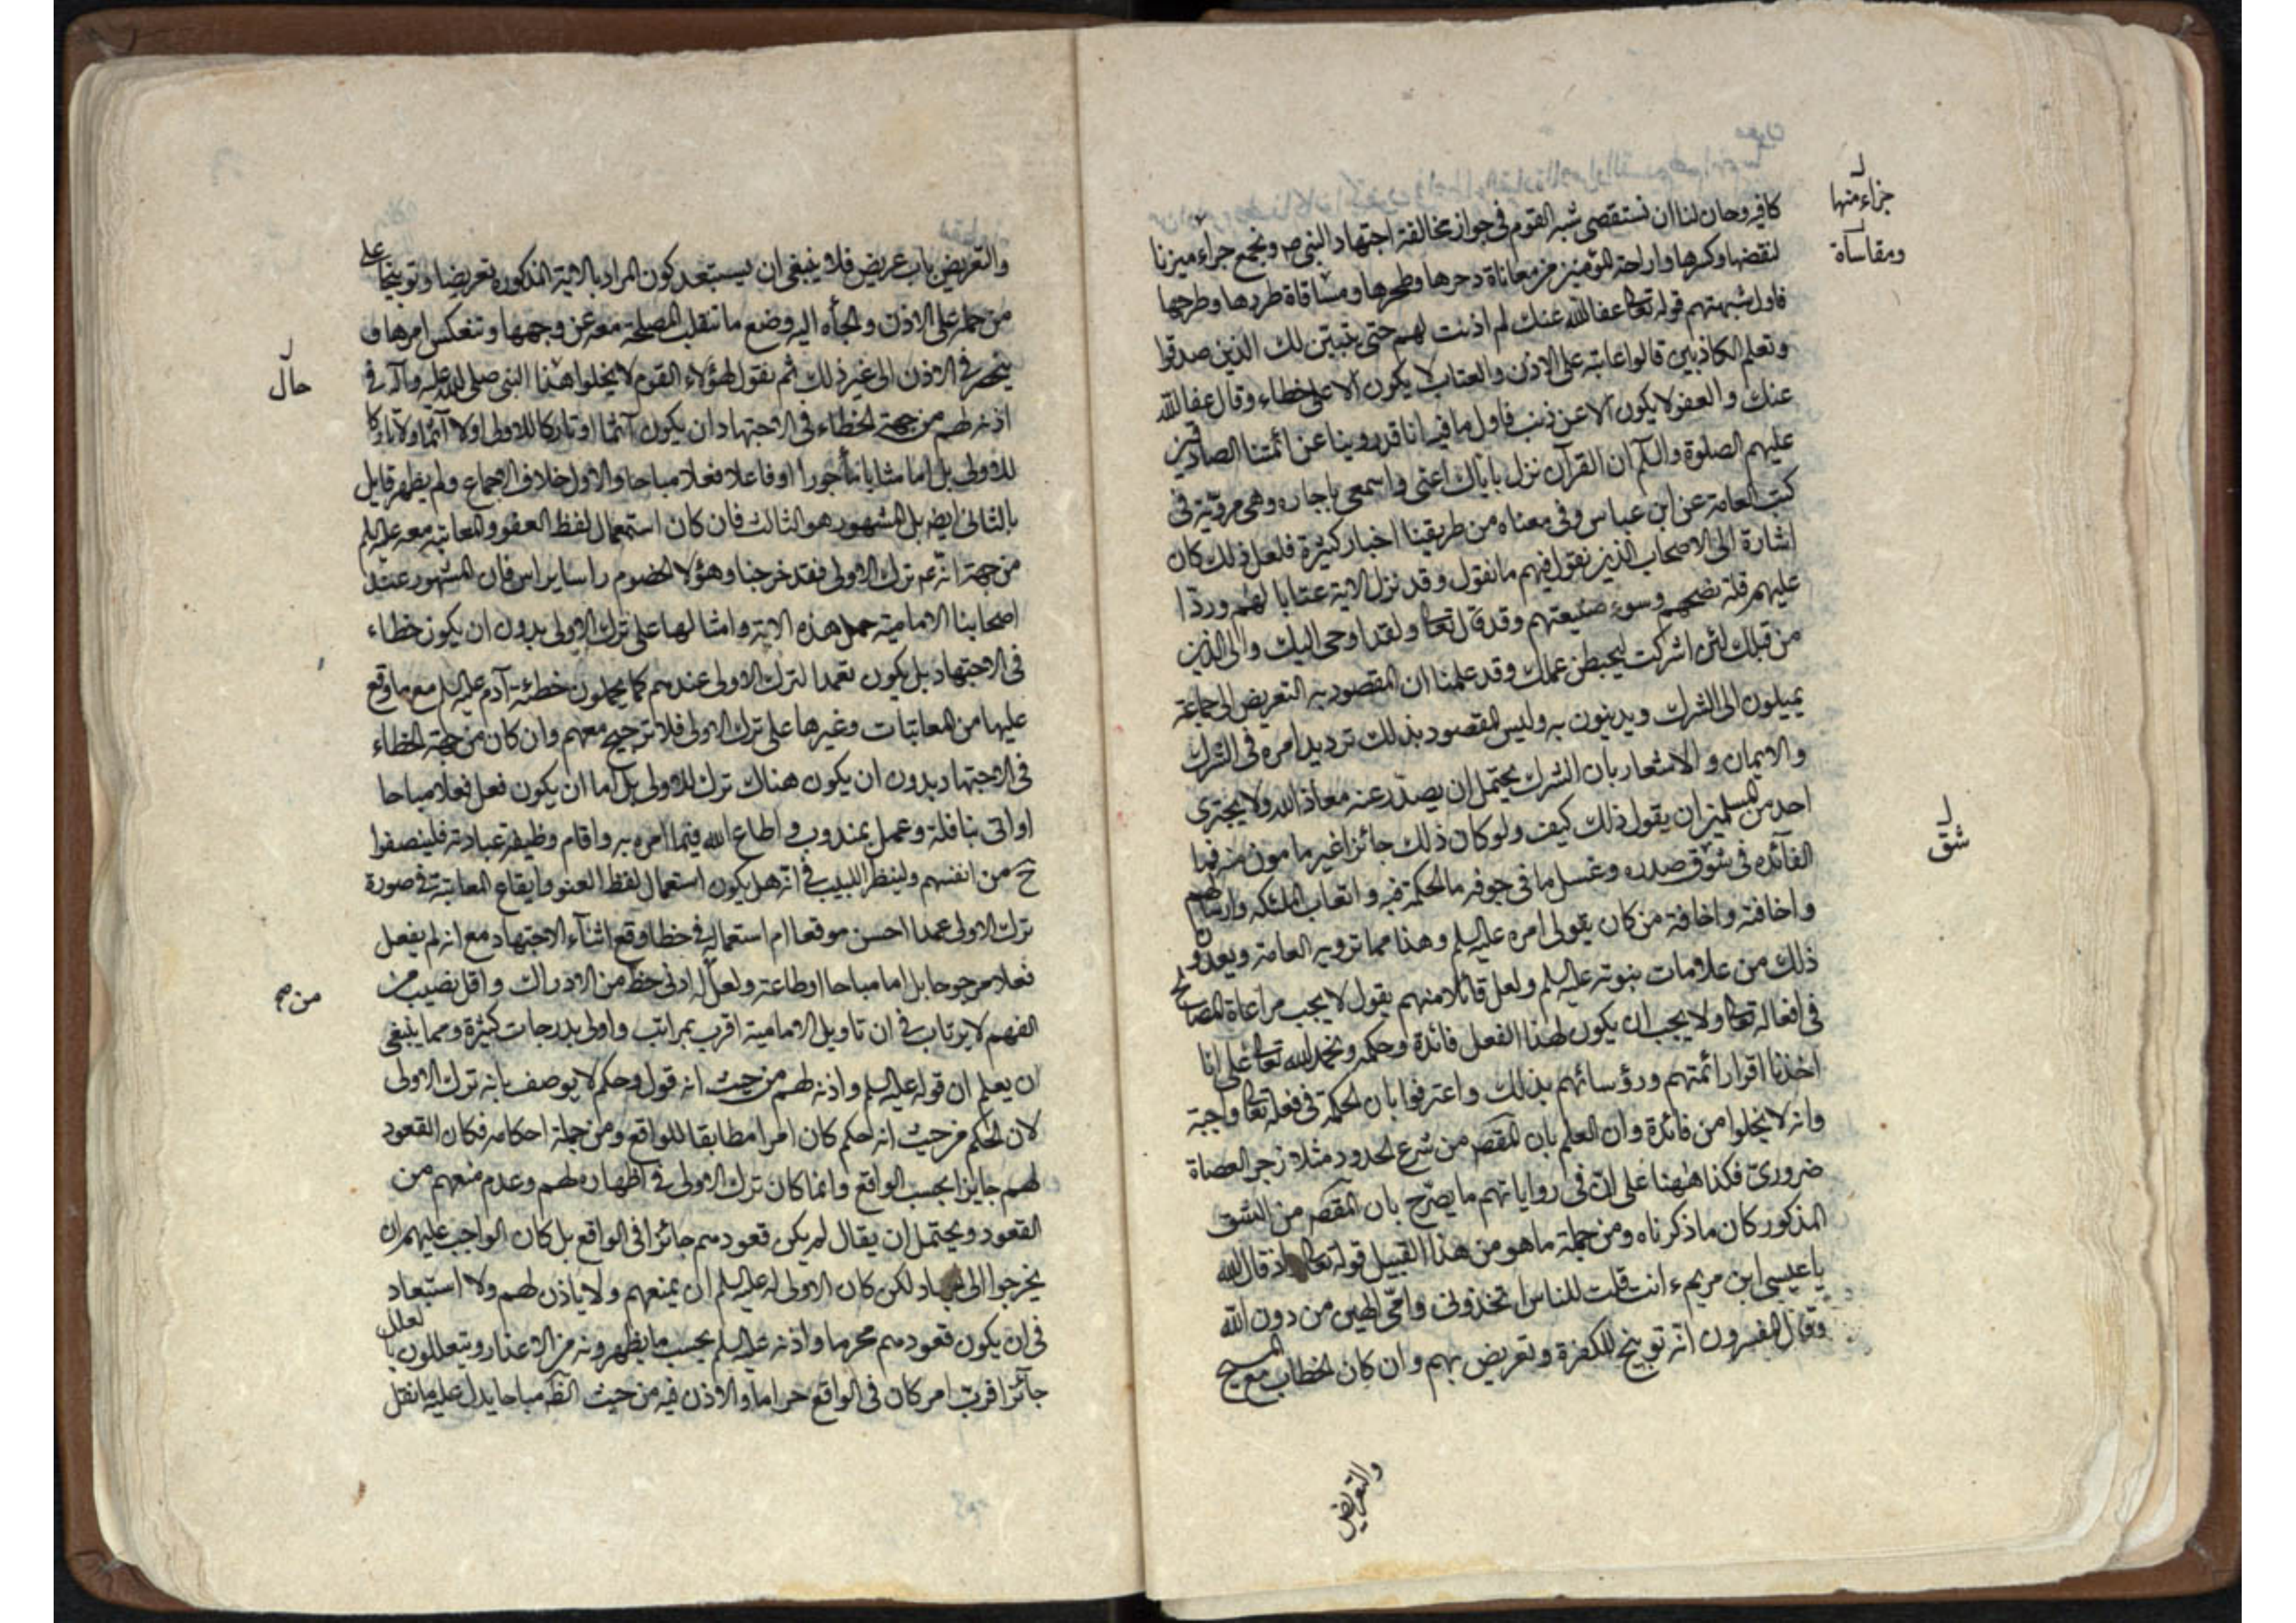 كافيه وحان لنا ان نستقصى شبه القوم فى جواز مخالفة اجتهاد النبى ص ونجمع جراء ميزنا
لنقضها وكسرها واراحة المؤمنين من معاناة دحرها وطحرها ومساقاة طردها وطرحها
جزاء منها
ومقاساة
فاول شبهتهم قوله تعالى عفا الله عنك لم اذنت لهم حتى يتبين لك الذين صدقوا
وتعلم الكاذبين قالوا عاتبه على الاذن والعتاب لا يكون الا على خطاء وقال عفا الله
عنك والعفو لا يكون الا عن ذنب فاول ما فيه انا قد روينا عن ائمتنا الصادقين
عليهم الصلوة والسلم ان القرآن نزل باياك اعنى واسمعى يا جاره وهى مروية فى
كتب العامة عن ابن عباس وفى معناه من طريقنا اخبار كثيرة فلعل ذلك كان
اشارة الى الاصحاب الذين نقول فيهم ما نقول وقد نزل الاية عتابا لهم وردا
عليهم قلة نصحهم وسوء صنيعتهم وقد قال تعالى ولقد اوحى اليك والى الذين
من قبلك لئن اشركت ليحبطن عملك وقد علمنا ان المقصود به التعريض الى جماعة
يميلون الى الشرك ويدينون به وليس المقصود بذلك ترديد امره فى الشرك
والايمان والاشعار بان الشرك يحتمل ان يصدر عنه معاذ الله ولا يجترى
احد من المسلمين ان يقول ذلك كيف ولو كان ذلك جائزا غير مامون منه فما
الفائده فى شوق صدره وغسل ما فى جوفه ما الحكمة فيه واتعاب الملئكه وارسالهم
شق
واخافته واخافة من كان يقولى امره عليه السلم وهذا مما ترويه العامة ويعدون
ذلك من علامات نبوته عليه السلم ولعل قائلا منهم يقول لا يجب مراعاة المصالح
فى افعاله تعالى ولا يجب ان يكون لهذا الفعل فائدة وحكمه ونحمد الله تعالى على انا
اخذنا اقرار ائمتهم ورؤسائهم بذلك واعترفوا بان الحكمة فى فعله تعالى واجبة
وانه لا يخلوا من فائدة وان العلم بان المقصر من شرع الحدود مثلا زجر العصاة
ضرورى فكذا هٰهنا على ان فى رواياتهم ما يصرح بان المقصر من الشق
المذكور كان ما ذكرناه ومن جملة ما هو من هذا القبيل قوله تعالى اذ قال الله
يا عيسى ابن مريم ءانت قلت للناس اتخذونى وامى الهين من دون الله
وقال المفسرون انه توبيخ للكفرة وتعريض بهم وان كان الخطاب مع المسيح
والتعريض
والتعريض باب عريض فلا ينبغى ان يستبعد كون المراد بالاية المذكورة تعريضا وتوبيخا على
من حمله على الاذن والجأه اليه وضع ما تنقلب المصلحة معه عن وجهها وتنعكس امرها و
حال
ينحصر فى الاذن الى غير ذلك ثم نقول لهؤلاء القوم لا يخلوا هذا النبى صلى الله عليه وآله فى
اذنه لهم من جهة الخطاء فى الاجتهاد ان يكون آثما او تاركا للاولى او لا آثما ولا تاركا
للاولى بل اما مثابا ماجورا او فاعلا فعلا مباحا والاول خلاف الاجماع ولم يظهر قايل
بالثانى ايضا بل المشهور هو الثالث فان كان استعمال لفظ العفو والمعاتبة معه عليه السلم
من جهة انه عم ترك الاولى فقد خرجنا وهؤلا الخصوم راسا براس فان المشهور عند
اصحابنا الامامية حمل هذه الاية وامثالها على ترك الاولى بدون ان يكون خطاء
فى الاجتهاد بل يكون تعمدا لترك الاولى عندهم كما يحملون خطئة آدم عليه السلم مع ما وقع
عليها من المعاتبات وغيرها على ترك الاولى فلا ترجيح معهم وان كان من جهة الخطاء
فى الاجتهاد بدون ان يكون هناك ترك للاولى بل اما ان يكون فعل فعلا مباحا
او اتى بنافلة وعمل بمندوب واطاع الله فيما امره به واقام وظيفة عبادته فلينصفوا
ح من انفسهم ولينظر اللبيب فى انه هل يكون استعمال لفظ العفو وايقاع المعاتبة فى صورة
ترك الاولى عمدا احسن موقعا ام استعماله فى خطا وقع اثناء الاجتهاد مع انه لم يفعل
فعلا مرجوحا بل اما مباحا او طاعة ولعل له ادنى حظ من الادراك واقل نصيب من
من
الفهم لا يرتاب فى ان تاويل الامامية اقرب بمراتب واولى بدرجات كثيرة ومما ينبغى
ان يعلم ان قوله عليه السلم واذنه لهم من حيث انه قول وحكم لا يوصف بانه ترك الاولى
لان الحكم من حيث انه حكم كان امرا مطابقا للواقع ومن جملة احكامه فكان القعود
لهم جايزا بحسب الواقع وانما كان ترك الاولى فى اظهاره لهم وعدم منعهم من
القعود ويحتمل ان يقال لم يكن قعودهم جائزا فى الواقع بل كان الواجب عليهم ان
يخرجوا الى الجهاد لكن كان الاولى له عليه السلم ان يمنعهم ولا ياذن لهم ولا استبعاد
فى ان يكون قعودهم محرما واذنه عليه السلم بحسب ما يظهرونه من الاعذار ويتعللون بالعلل
جائزا فرب امر كان فى الواقع حراما والاذن فيه من حيث الظ مباحا يدل عليه ما نقل